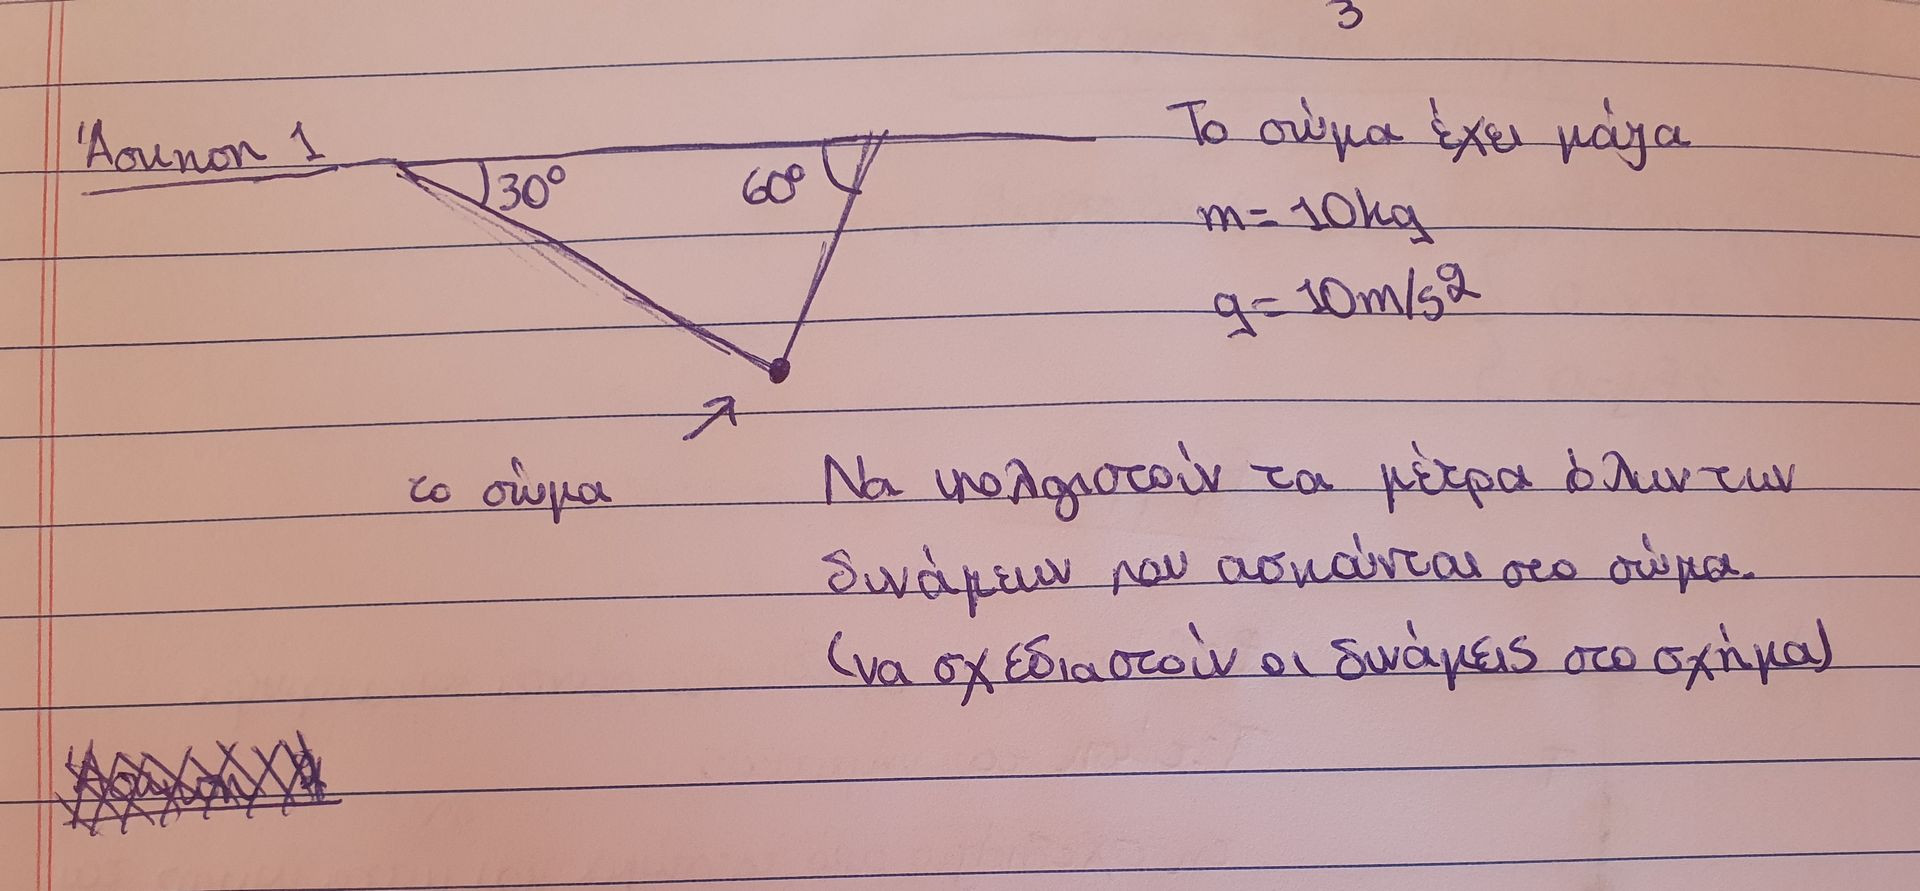 3
Άσκηση 1
30°
60°
Το σώμα έχει μάζα
m = 10kg
g = 10m/s²
το σώμα
Να υπολογιστούν τα μέτρα όλων των
δυνάμεων που ασκούνται στο σώμα.
(να σχεδιαστούν οι δυνάμεις στο σχήμα)